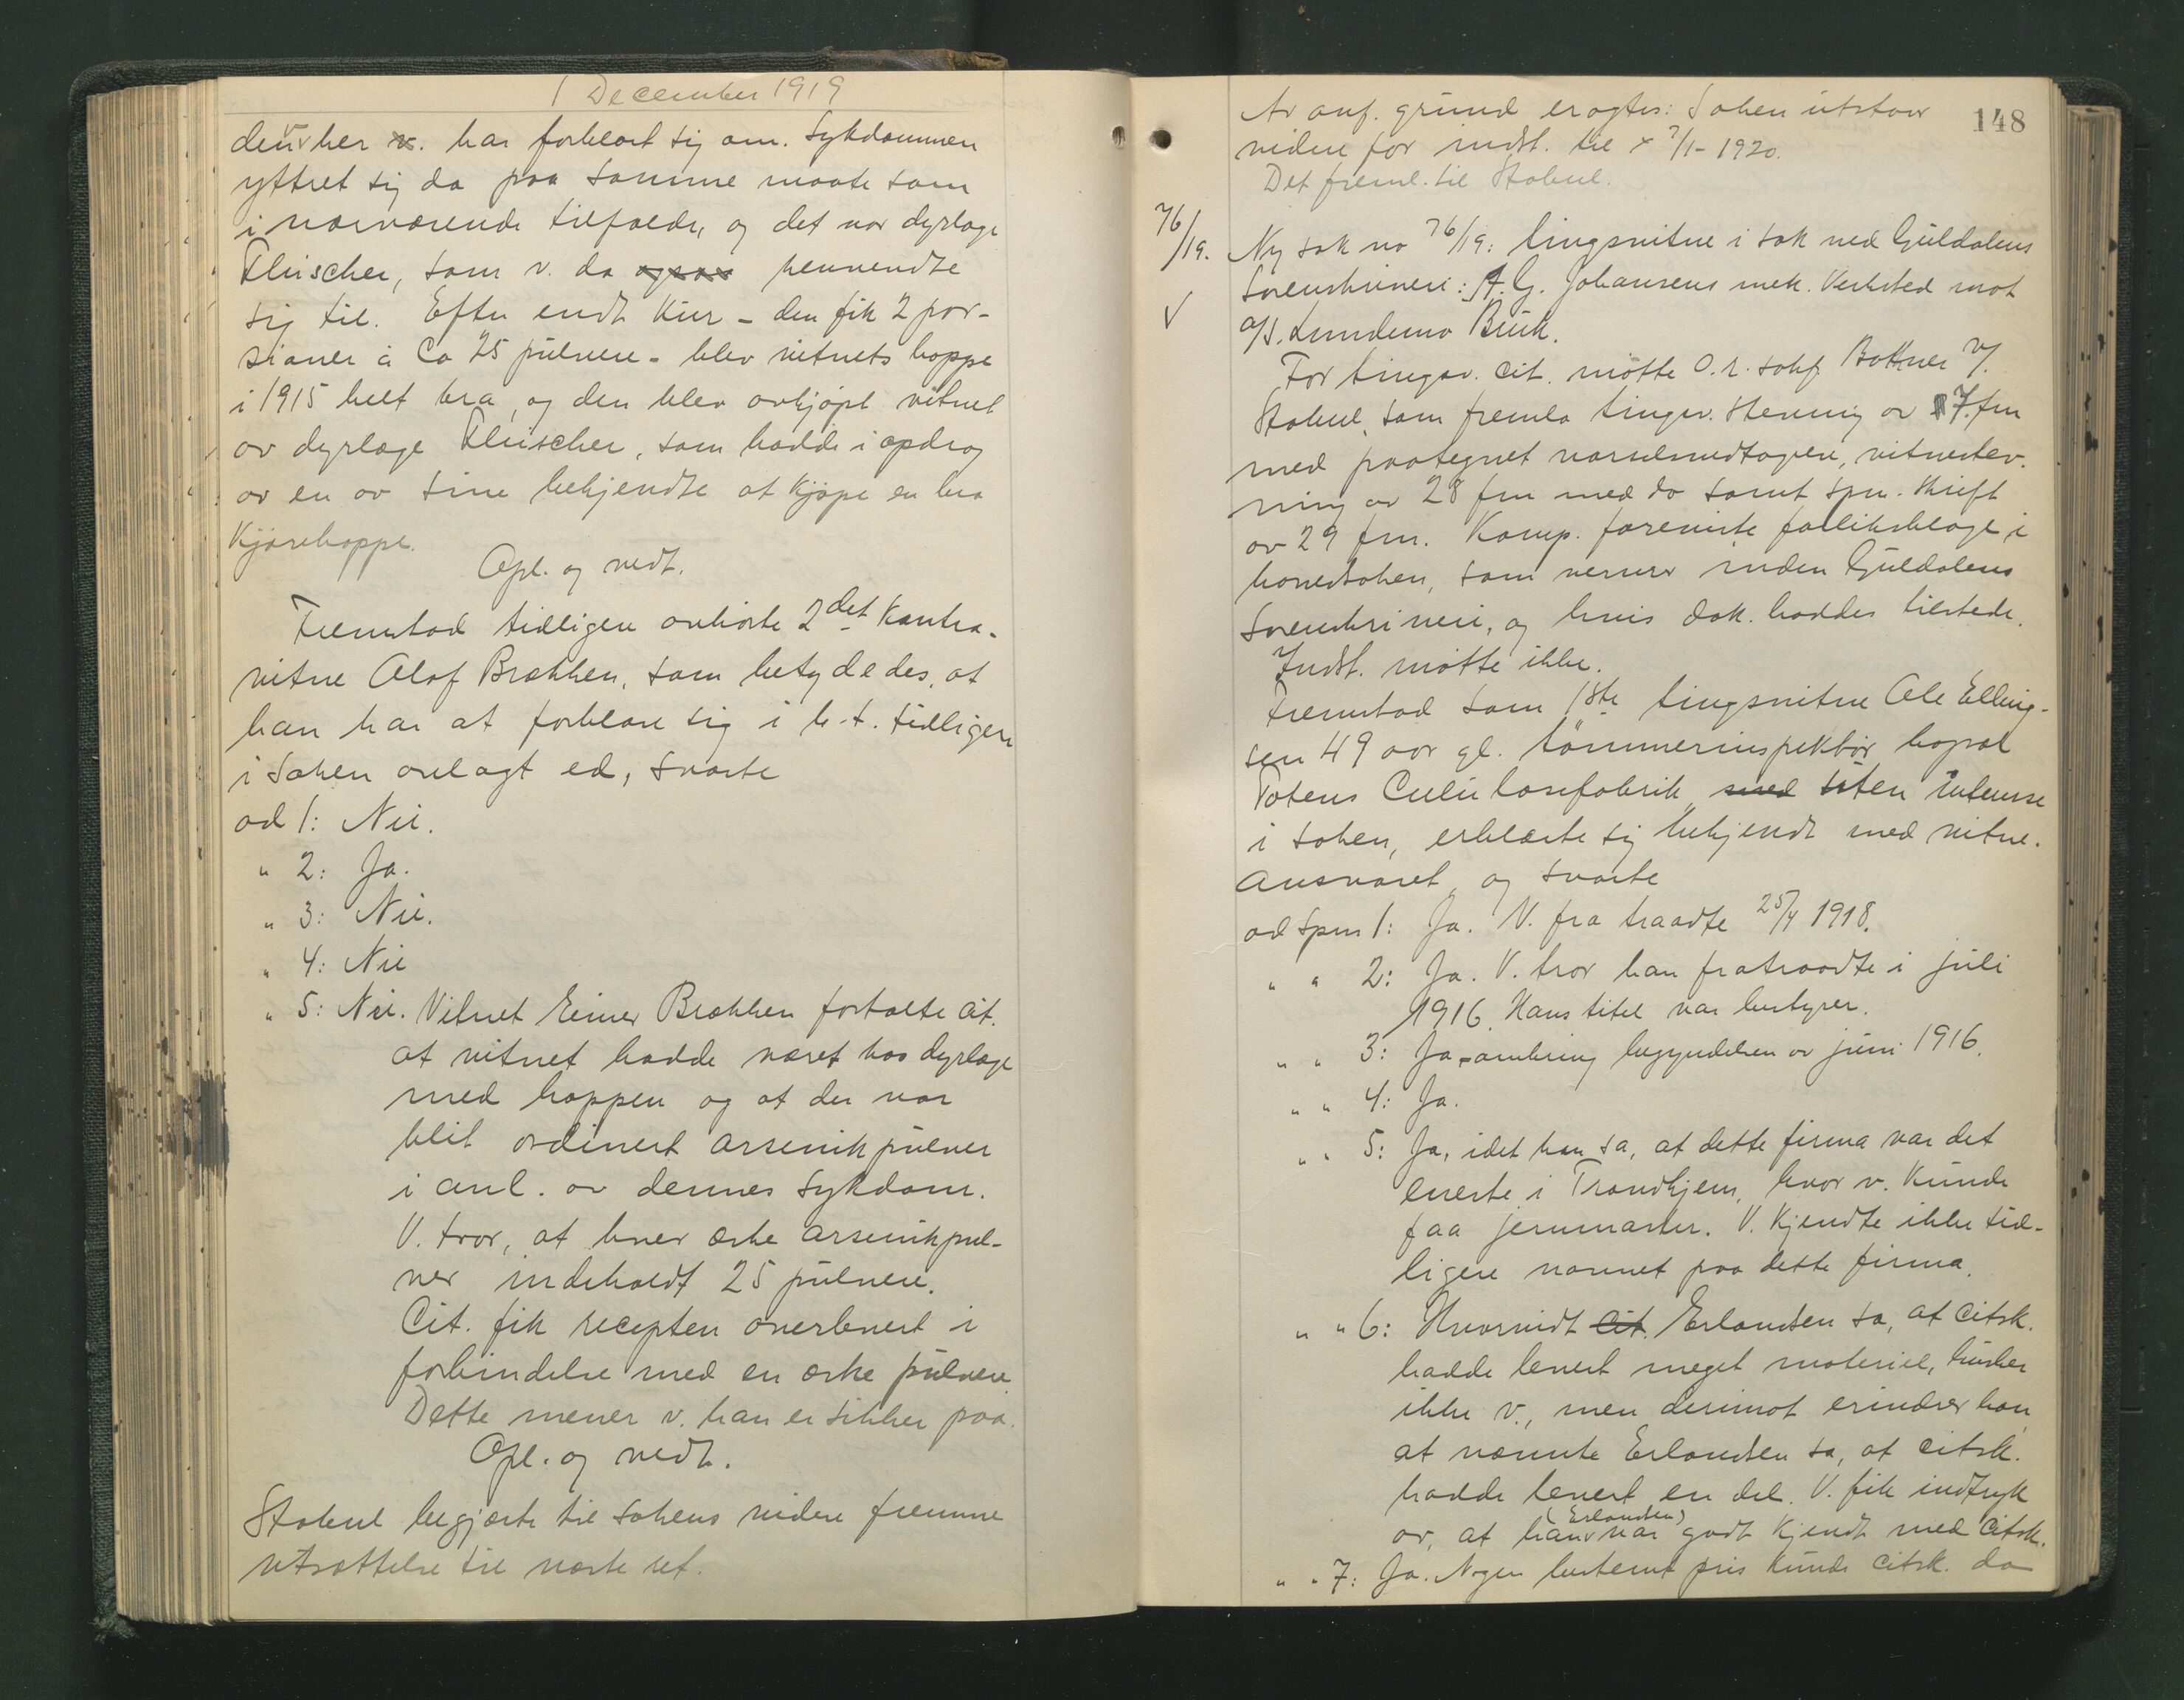 1 December 1919
den her v. har forklart sig om. Sykdommen
yttret sig da paa samme maate som
i nærværende tilfælde, og det var dyrlæge
Fleischer, som v. da ogsaa henvendte
sig til. Efter endt kur - den fik 2 por-
sioner à ca 25 pulvere - blev vitnets hoppe
i 1915 helt bra, og den blev avkjøpt vitnet
av dyrlæge Fleischer, som hadde i opdrag
av en av sine bekjendte at kjøpe en bra
kjørehoppe.
Opl. og vedt.
Fremstod tidligere avhørte 2det kontra-
vitne Olaf Brækken, som betydedes, at
han har at forklare sig i h. t. tidligere
i saken avlagt ed, svarte
ad 1: Nei.
" 2: Ja.
" 3: Nei.
" 4: Nei
" 5: Nei. Vitnet Einar Brækken fortalte cit.
at vitnet hadde været hos dyrlæge
med hoppen og at der var
blit ordinert arsenikpulver
i anl. av dennes sykdom.
V. tror, at hver æske arsenikpul-
ver indeholdt 25 pulvere.
Cit. fik recepten overlevert i
forbindelse med en æske pulvere.
Dette mener v. han er sikker paa.
Opl. og vedt.
Stabel begjærte til sakens videre fremme
utsættelse til næste ret.
148
Av anf. grund eragtes: Saken utstaar
videre for indst. til 7/1-1920.
Det freml. til Stabel.
76/19.
Ny sak no 76/19: tingsvitne i sak ved Guldalens
sorenskriveri: A. G. Johansens mek. Verksted mot
a/s. Lundemo Bruk.
For tingsv. cit. møtte O.r. sakf. Bøttner v/
Stabel, som fremla tingsv. stevning av 7. fm
med paategnet varselsmedtagen, vitnestev-
ning av 28 fm med do samt spm. skrift
av 29 fm. Komp. foreviste forliksklage i
hovedsaken, som verserer inden Guldalens
sorenskriveri, og hvis dok. haddes tilstede.
Indst. møtte ikke.
Fremstod som 1ste tingsvitne Ole Elling-
sen 49 aar gl. tømmerinspektør bopæl
Totens Cellulosefabrik, med uten interesse
i saken, erklærte sig bekjendt med vitne-
ansvaret, og svarte
ad spm 1: Ja. V. fra traadte 25/4 1918.
" " 2: Ja. V. tror han fratraadte i juli
1916. Hans titel var bestyrer.
" " 3: Ja, omkring begyndelsen av juni 1916.
" " 4: Ja.
" " 5: Ja, idet han sa, at dette firma var det
eneste i Trondhjem, hvor v. kunde
faa jernmaster. V. kjendte ikke tid-
ligere navnet paa dette firma.
" " 6: Hvorvidt cit. Erlandsen sa, at citsk.
hadde levert meget materiel, husker
ikke v., men derimot erindrer han,
at nævnte Erlandsen sa, at citsk.
hadde levert en del. V. fik indtryk
(Erlandsen)
av, at han var godt kjendt med citsk.
" " 7: Ja. Nogen bestemt pris kunde citsk. da